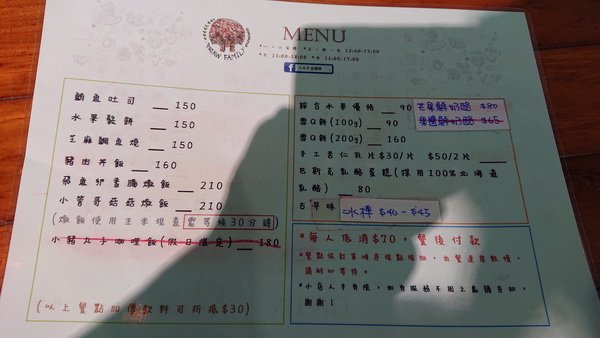 MENU
鯛魚吐司 __ 150
水果鬆餅 __ 150
芝麻鯛魚燒 __ 150
豬肉丼飯 __ 160
飛魚卵香腸燉飯 __ 210
小管哥菇菇燉飯 __ 210
(燉飯使用生米現煮需等候30分鐘)
小豬丸子咖哩飯(假日限定) __ 180
(以上餐點加價飲料可折抵$30)
綜合水果優格 __ 90
雪Q餅(100g) __ 90
雪Q餅(200g) __ 160
手工杏仁瓦片 $30/片 $50/2片 __
巴斯克乳酪蛋糕(採用100%北海道
乳酪) __ 80
古早味 冰棒 $40-$45
芒果鮮奶酪 $80
果醬鮮奶酪 $65
*每人低消$70,餐後付款
*餐點依訂單順序現點現做,出餐速度較慢,
請耐心等待。
*小店人手有限,如有服務不周之處請告知,
謝謝!